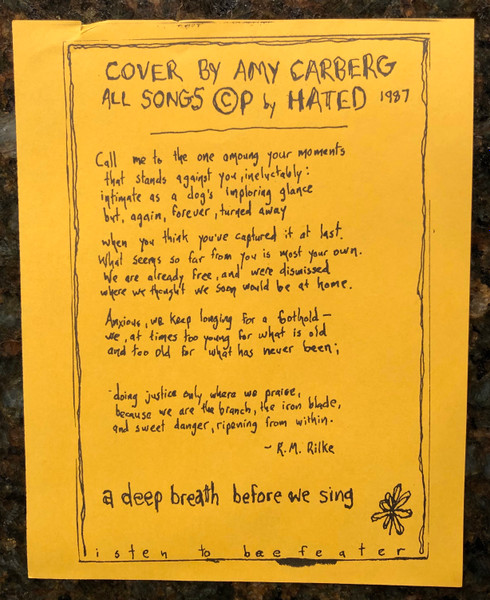 COVER BY AMY CARBERG
ALL SONGS ©P by HATED 1987
Call me to the one amoung your moments
that stands against you, ineluctably:
intimate as a dog's imploring glance
but, again, forever, turned away
when you think you've captured it at last.
What seems so far from you is most your own.
We are already free, and were dismissed
where we thought we soon would be at home.
Anxious, we keep longing for a foothold—
we, at times too young for what is old
and too old for what has never been;
-doing justice only where we praise,
because we are the branch, the iron blade,
and sweet danger, ripening from within.
- R.M. Rilke
a deep breath before we sing
listen to beefeater